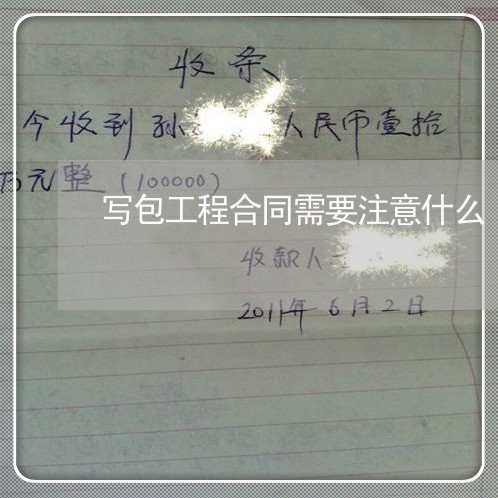 收条
今收到孙 人民币壹拾
万元整(100000)
写包工程合同需要注意什么
收款人
2011年6月2日